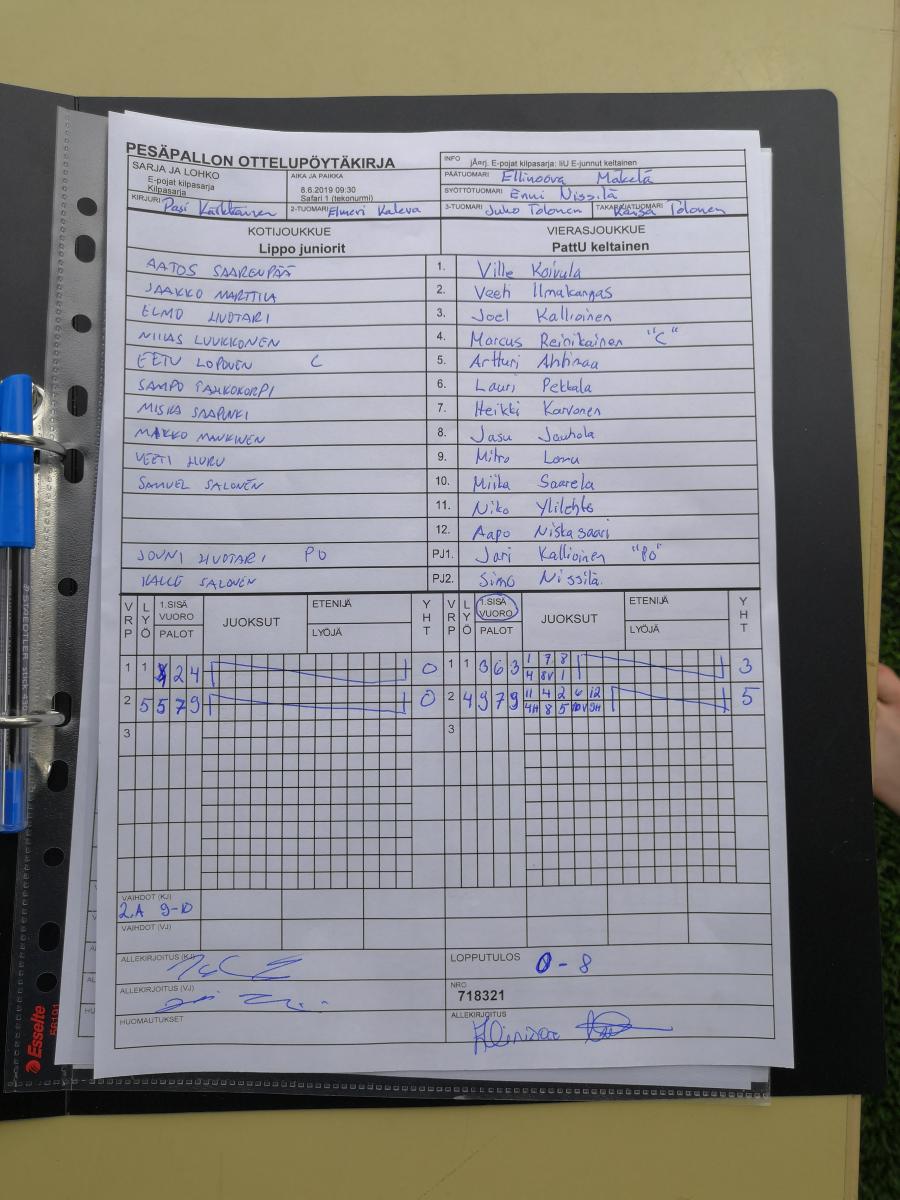 PESÄPALLON OTTELUPÖYTÄKIRJA
SARJA JA LOHKO
E-pojat kilpasarja
Kilpasarja
AIKA JA PAIKKA
8.6.2019 09:30
Safari 1 (tekonurmi)
INFO jÄ¤rj. E-pojat kilpasarja: IiU E-junnut keltainen
PÄÄTUOMARI Ellinoora Mäkelä
SYÖTTÖTUOMARI Enni Nissilä
KIRJURI Pasi Karkkainen 2-TUOMARI Elmeri Kaleva 3-TUOMARI Juho Tolonen TAKARAJATUOMARI Tolonen
KOTIJOUKKUE VIERASJOUKKUE
Lippo juniorit PattU keltainen
AATOS SAARENPÄÄ 1. Ville Koivula
JAAKKO MARTTILA 2. Veeti Ilmakangas
ELMO HUOTARI 3. Joel Kallioinen
NIILAS LUUKKONEN 4. Marcus Reinikainen "C"
EETU LOPONEN C 5. Artturi Ahtinaa
SAMPO TAHKOKORPI 6. Lauri Pekkala
MISKA SAAPUNKI 7. Heikki Karvonen
MARKO MANNINEN 8. Jasu Jouhola
VEETI HURU 9. Mitro Lomu
SAMUEL SALONEN 10. Miika Saarela
11. Niko Ylilehto
12. Aapo Niskasaari
JOUNI HUOTARI PJ1. Jari Kallioinen "PJ"
KALLE SALONEN PJ2. Simo Nissilä
VRP LYÖ 1.SISÄ VUORO PALOT JUOKSUT ETENIJÄ LYÖJÄ YHT VRP LYÖ 1.SISÄ VUORO PALOT JUOKSUT ETENIJÄ LYÖJÄ YHT
1 1 2 4 0 1 1 3 6 3 1 7 8 3
4 8V 1
2 5 5 7 9 0 2 4 9 7 9 11 4 2 6 12 5
4H 8 5 10V 9H
3 3
VAIHDOT (KJ)
2.A 9-10
VAIHDOT (VJ)
ALLEKIRJOITUS (KJ) LOPPUTULOS 0 - 8
ALLEKIRJOITUS (VJ) NRO
718321
HUOMAUTUKSET ALLEKIRJOITUS
Esselte
56191
STAEDTLER stick 430